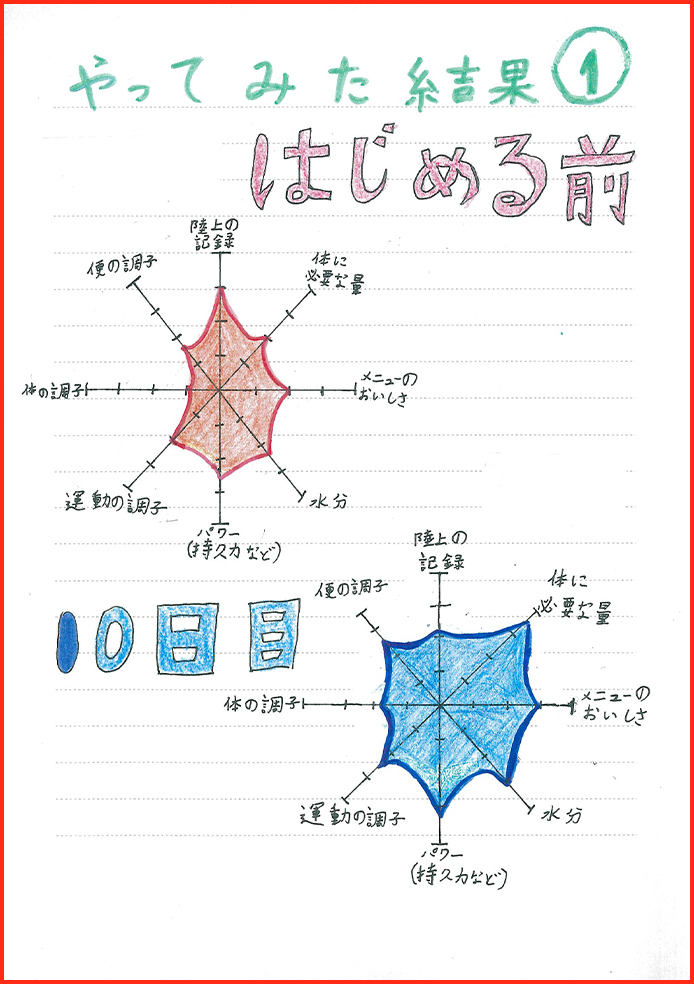 やってみた結果①
はじめる前
陸上の
記録
体に
必要な量
メニューの
おいしさ
水分
パワー
(持久力など)
運動の調子
体の調子
便の調子
10日目
陸上の
記録
体に
必要な量
メニューの
おいしさ
水分
パワー
(持久力など)
運動の調子
体の調子
便の調子